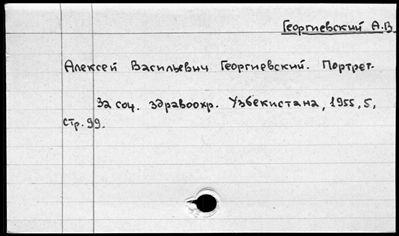 Георгиевский А.В.
Алексей Васильевич Георгиевский. Портрет.
За соц. здравоохр. Узбекистана, 1955, 5,
стр. 99.